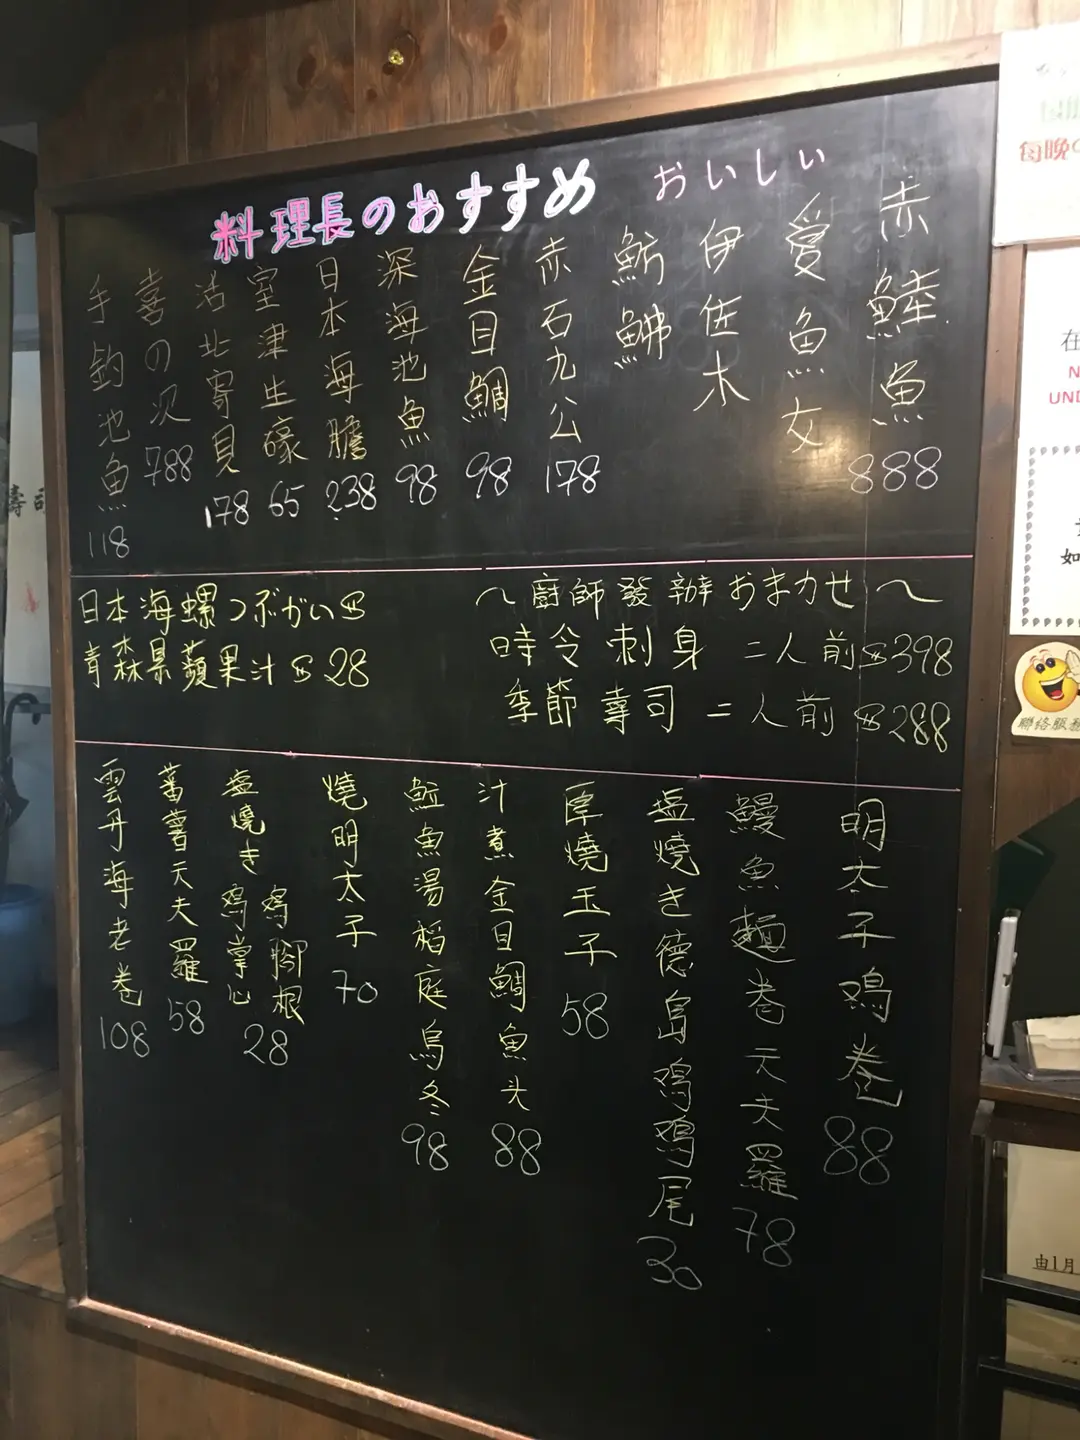 料理長のおすすめ
おいしい
赤鯥魚 888
愛魚女
伊佐木
魴鮄
赤石九公 178
金目鯛 98
深海池魚 98
日本海膽 238
室津生蠔 65
活北寄貝 178
喜の次 788
手釣池魚 118
日本海螺つぶがい
青森県蘋果汁 28
～廚師發辦おまかせ～
時令刺身 二人前 398
季節壽司 二人前 288
明太子鸡卷 88
鰻魚麵卷天夫羅 78
塩燒き德島鸡鸡尾 30
厚燒玉子 58
汁煮金目鯛魚头 88
魚湯稻庭烏冬 98
燒明太子 70
塩燒き鸡掌心
鸡腳根 28
蕃薯天夫羅 58
雲丹海老卷 108
每晚
在
N
UND
如
聯絡服務
由1月
壽司